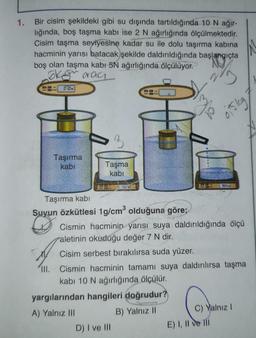 1. Bir cisim şekildeki gibi su dışında tartıldığında 10 N ağır-
lığında, boş taşma kabı ise 2 N ağırlığında ölçülmektedir.
Cisim taşma seviyesine kadar su ile dolu taşırma kabına
hacminin yarısı batacak şekilde daldırıldığında başlangıçta
boş olan taşma kabı 5N ağırlığında ölçülüyor.
Taşırma
kabı
3
Taşma
kabı
Taşırma kabı
Suyun özkütlesi 1g/cm³ olduğuna göre;
Cismin hacminin yarısı suya daldırıldığında ölçü
aletinin okuduğu değer 7 N dir.
Cisim serbest bırakılırsa suda yüzer.
III. Cismin hacminin tamamı suya daldırılırsa taşma
kabı 10 N ağırlığında ölçülür.
yargılarından hangileri doğrudur?
A) Yalnız III
B) Yalnız II
C) Yalnız I
D) I ve III
E) I, II ve III